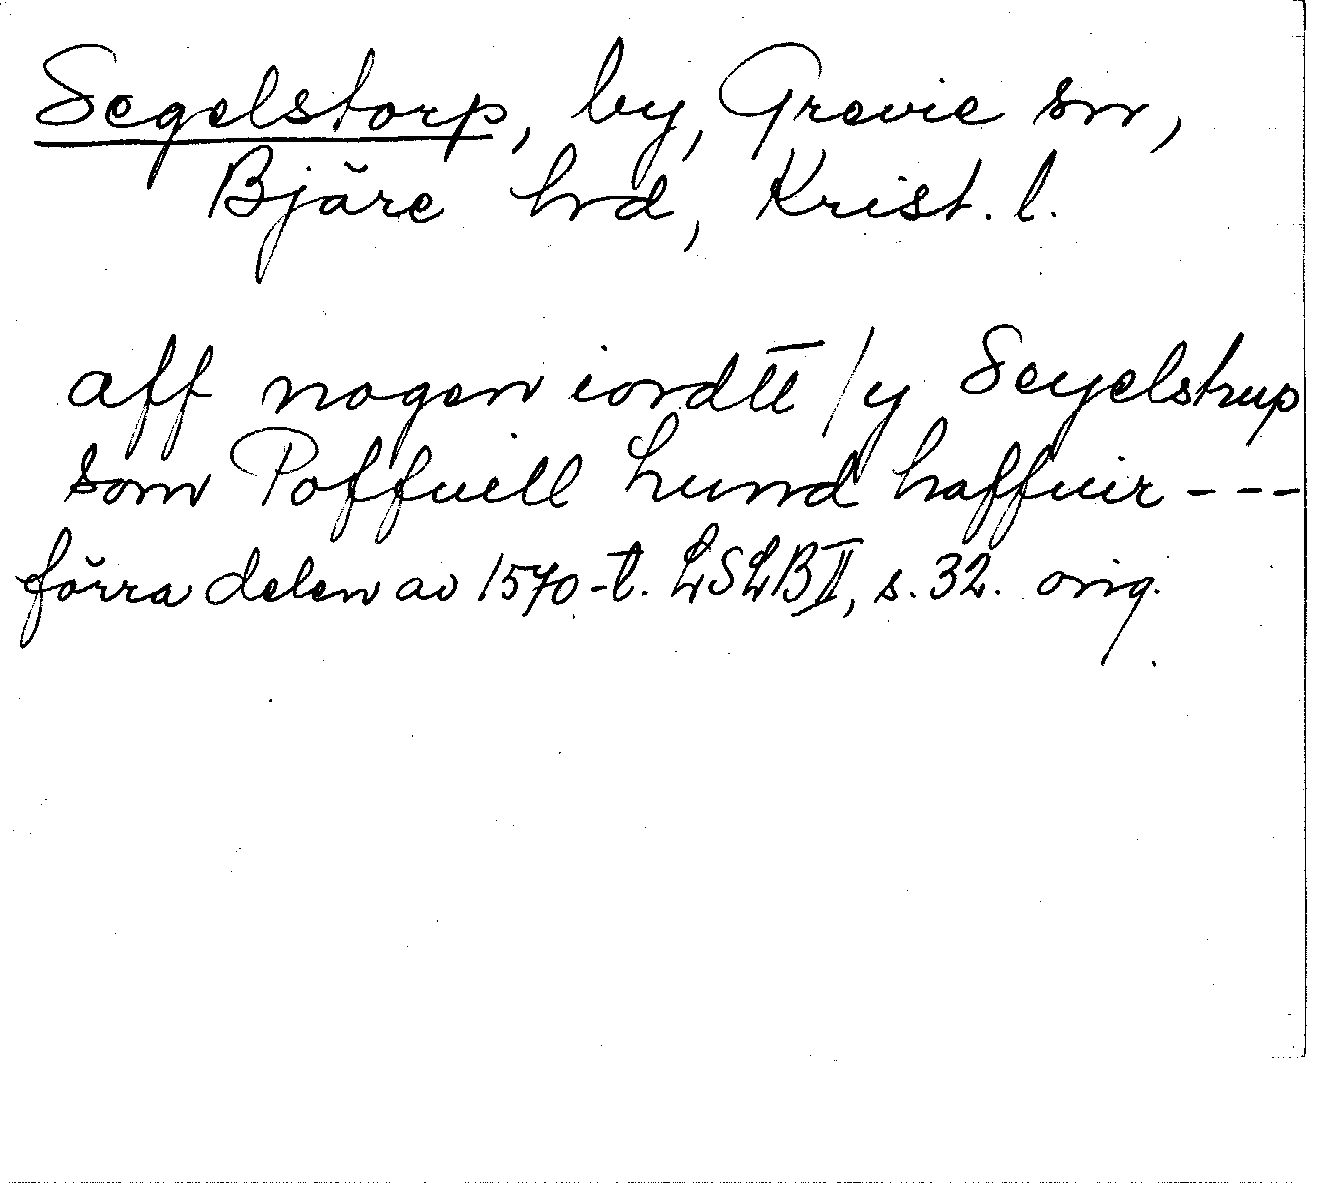 Segelstorp, by, Grevie sn,
Bjäre hrd, Krist. l.
aff nogen iordtt / y Seyelstrup
som Poffuell hund haffuir ---
förra delen av 1570-t. LSLB II, s. 32. orig.